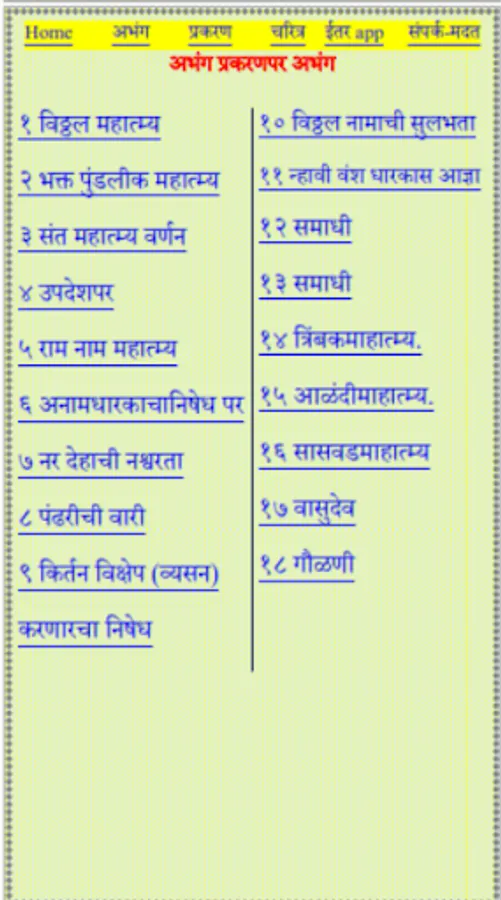 Home अभंग प्रकरण चरित्र ईतर app संपर्क-मदत
अभंग प्रकरणपर अभंग
१ विठ्ठल महात्म्य
२ भक्त पुंडलीक महात्म्य
३ संत महात्म्य वर्णन
४ उपदेशपर
५ राम नाम महात्म्य
६ अनामधारकाचानिषेध पर
७ नर देहाची नश्वरता
८ पंढरीची वारी
९ किर्तन विक्षेप (व्यसन)
करणारचा निषेध
१० विठ्ठल नामाची सुलभता
११ न्हावी वंश धारकास आज्ञा
१२ समाधी
१३ समाधी
१४ त्रिंबकमाहात्म्य.
१५ आळंदीमाहात्म्य.
१६ सासवडमाहात्म्य
१७ वासुदेव
१८ गौळणी